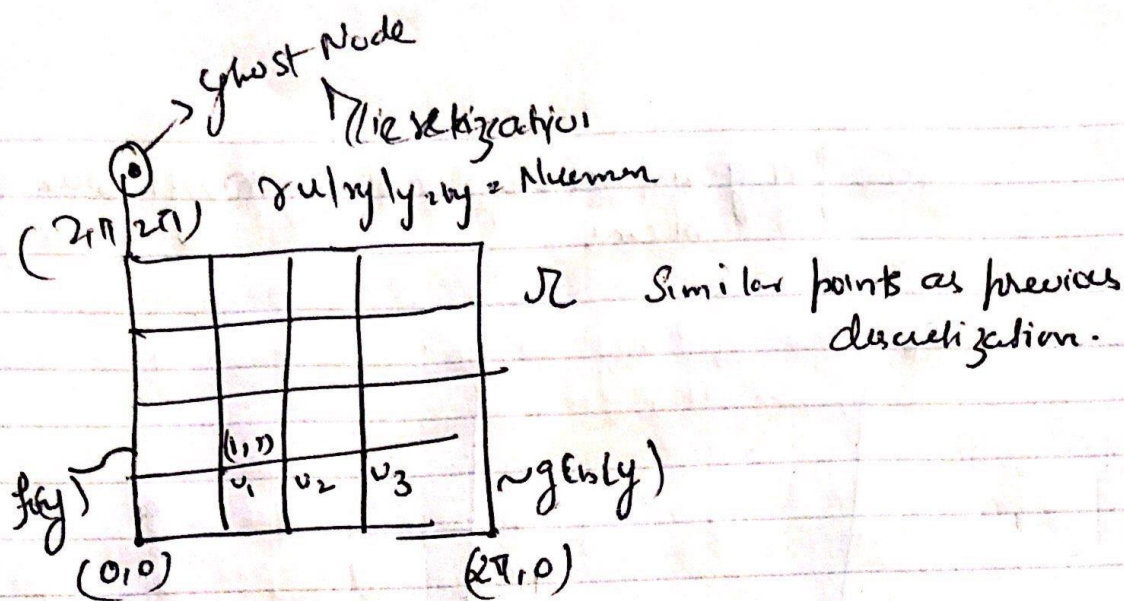 Ghost Node
Discretization
∂u/∂y|y=by = Nuemen
(2π, 2π)
Ω Similar points as previous
discretization.
(1,1)
u₁ u₂ u₃
f(y)
(0,0)
(2π,0)